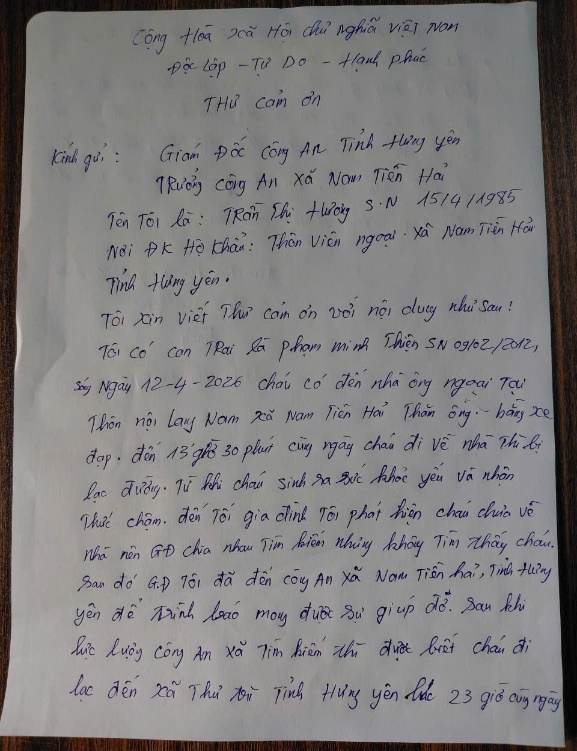 Cộng Hoà Xã Hội chủ nghĩa việt Nam
Độc Lập - Tự Do - Hạnh phúc
THƯ cảm ơn
Kính gửi : Giám Đốc công AN Tỉnh Hưng yên
TRưởng công AN xã Nam Tiền Hải
Tên Tôi là : TRần Thị Hương S.N 15/4/1985
Nơi ĐK Hộ khẩu : Thôn Viên ngoại. xã Nam Tiền Hải
Tỉnh Hưng yên.
Tôi xin viết Thư cảm ơn với nội dung như sau !
Tôi có con TRai là phạm minh Thiện SN 09/02/2012,
sáng Ngày 12-4-2026 cháu có đến nhà ông ngoại Tại
Thôn nội Lang Nam xã Nam Tiền Hải Thăm ông. bằng xe
đạp. đến 13 giờ 30 phút cùng ngày cháu đi về nhà Thì bị
lạc đường. Từ khi cháu sinh ra sức khỏe yếu và nhận
Thức chậm. đến Tối gia đình Tôi phát hiện cháu chưa về
nhà nên GĐ chia nhau Tìm kiếm nhưng không Tìm Thấy cháu.
Sau đó G.Đ Tôi đã đến công AN xã Nam Tiền hải, Tỉnh Hưng
yên để Trình báo mong được sự giúp đỡ. sau khi
lực lượng công AN xã Tìm kiếm Thì được biết cháu đi
lạc đến xã Thư Trì Tỉnh Hưng yên lúc 23 giờ cùng ngày